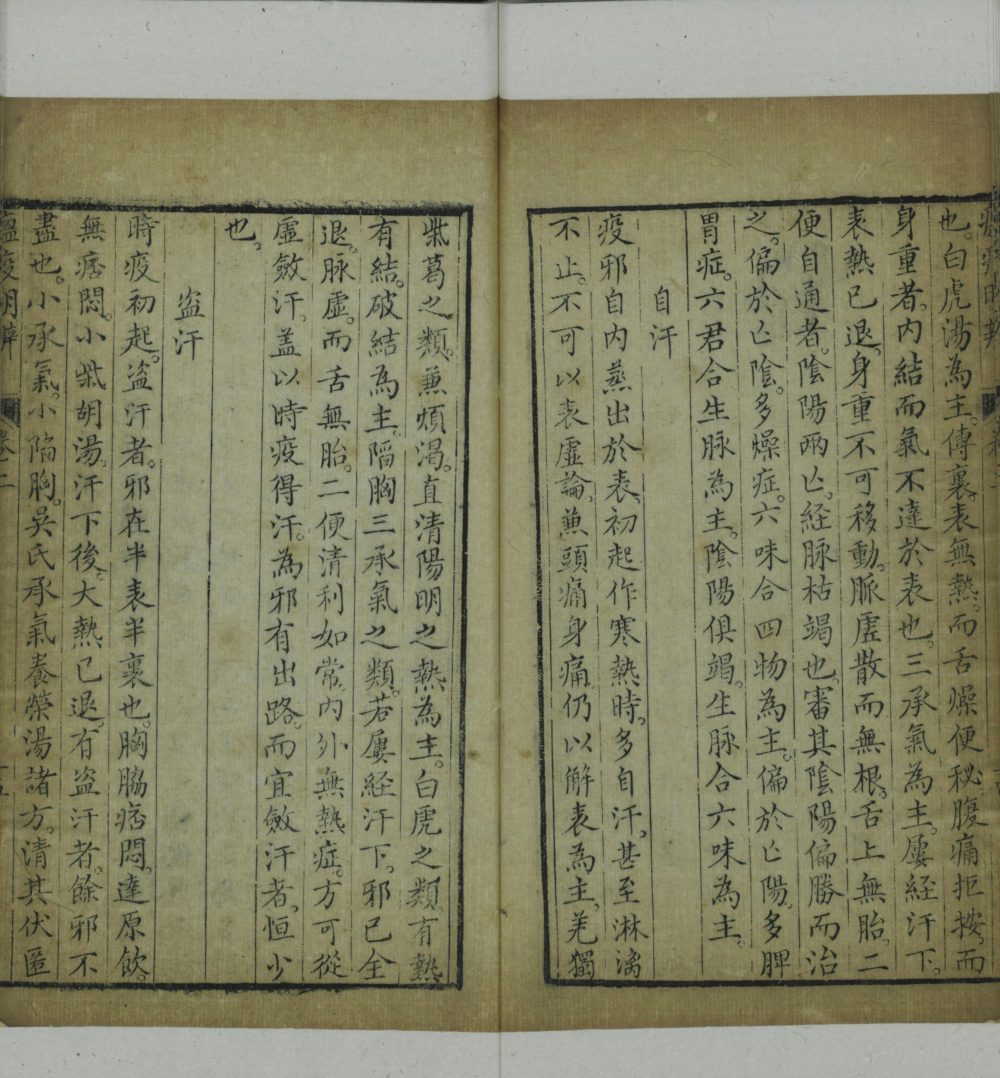 瘟疫明辨
也。白虎湯為主。傳裏。表無熱。而舌燥便秘。腹痛拒按。而
身重者。內結而氣不達於表也。三承氣為主。屢經汗下。
表熱已退。身重不可移動。脈虛散而無根。舌上無胎。二
便自通者。陰陽兩亾。経脉枯竭也。審其陰陽偏勝而治
之。偏於亾陰。多燥症。六味合四物為主。偏於亾陽。多脾
胃症。六君合生脉為主。陰陽俱竭。生脉合六味為主。
自汗
疫邪自內蒸出於表。初起作寒熱時。多自汗。甚至淋漓
不止。不可以表虛論。兼頭痛身痛。仍以解表為主。羌獨
柴葛之類。兼煩渴。直清陽明之熱為主。白虎之類。有熱
有結。破結為主。陷胸三承氣之類。若屢経汗下。邪已全
退。脉虛。而舌無胎。二便清利如常。內外無熱症。方可從
虛斂汗。盖以時疫得汗。為邪有出路。而宜斂汗者。恒少
也。
盜汗
時疫初起。盜汗者。邪在半表半裏也。胸脇痞悶。達原飲。
無痞悶。小柴胡湯。汗下後。大熱已退。有盜汗者。餘邪不
盡也。小承氣。小陷胸。吳氏承氣養榮湯諸方。清其伏匿
瘟疫明辨 卷二 十五